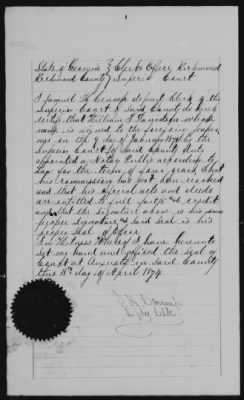 State of Georgia } Clerks Office Richmond
Richmond County } Superior Court
I Samuel H Crump deputy Clerk of the
Superior Court of Said County do hereby
certify that William F.
name is signed to the foregoing
was on the 9 day of January 1874 in the
Superior Court of Said County duly
appointed a Notary Public as provided by
Law for the Term of four years, that
his Commission has not been revoked
and that his official acts and deeds
are entitled to full faith and credit
and that the Signature above is his own
proper Signature and Said Seal is his
proper Seal of Office
In Witness Whereof I have hereunto
Set my hand and affixed the Seal of
Court at Augusta in Said County
this 18th day of April 1874
S H Crump
Dpty Clk